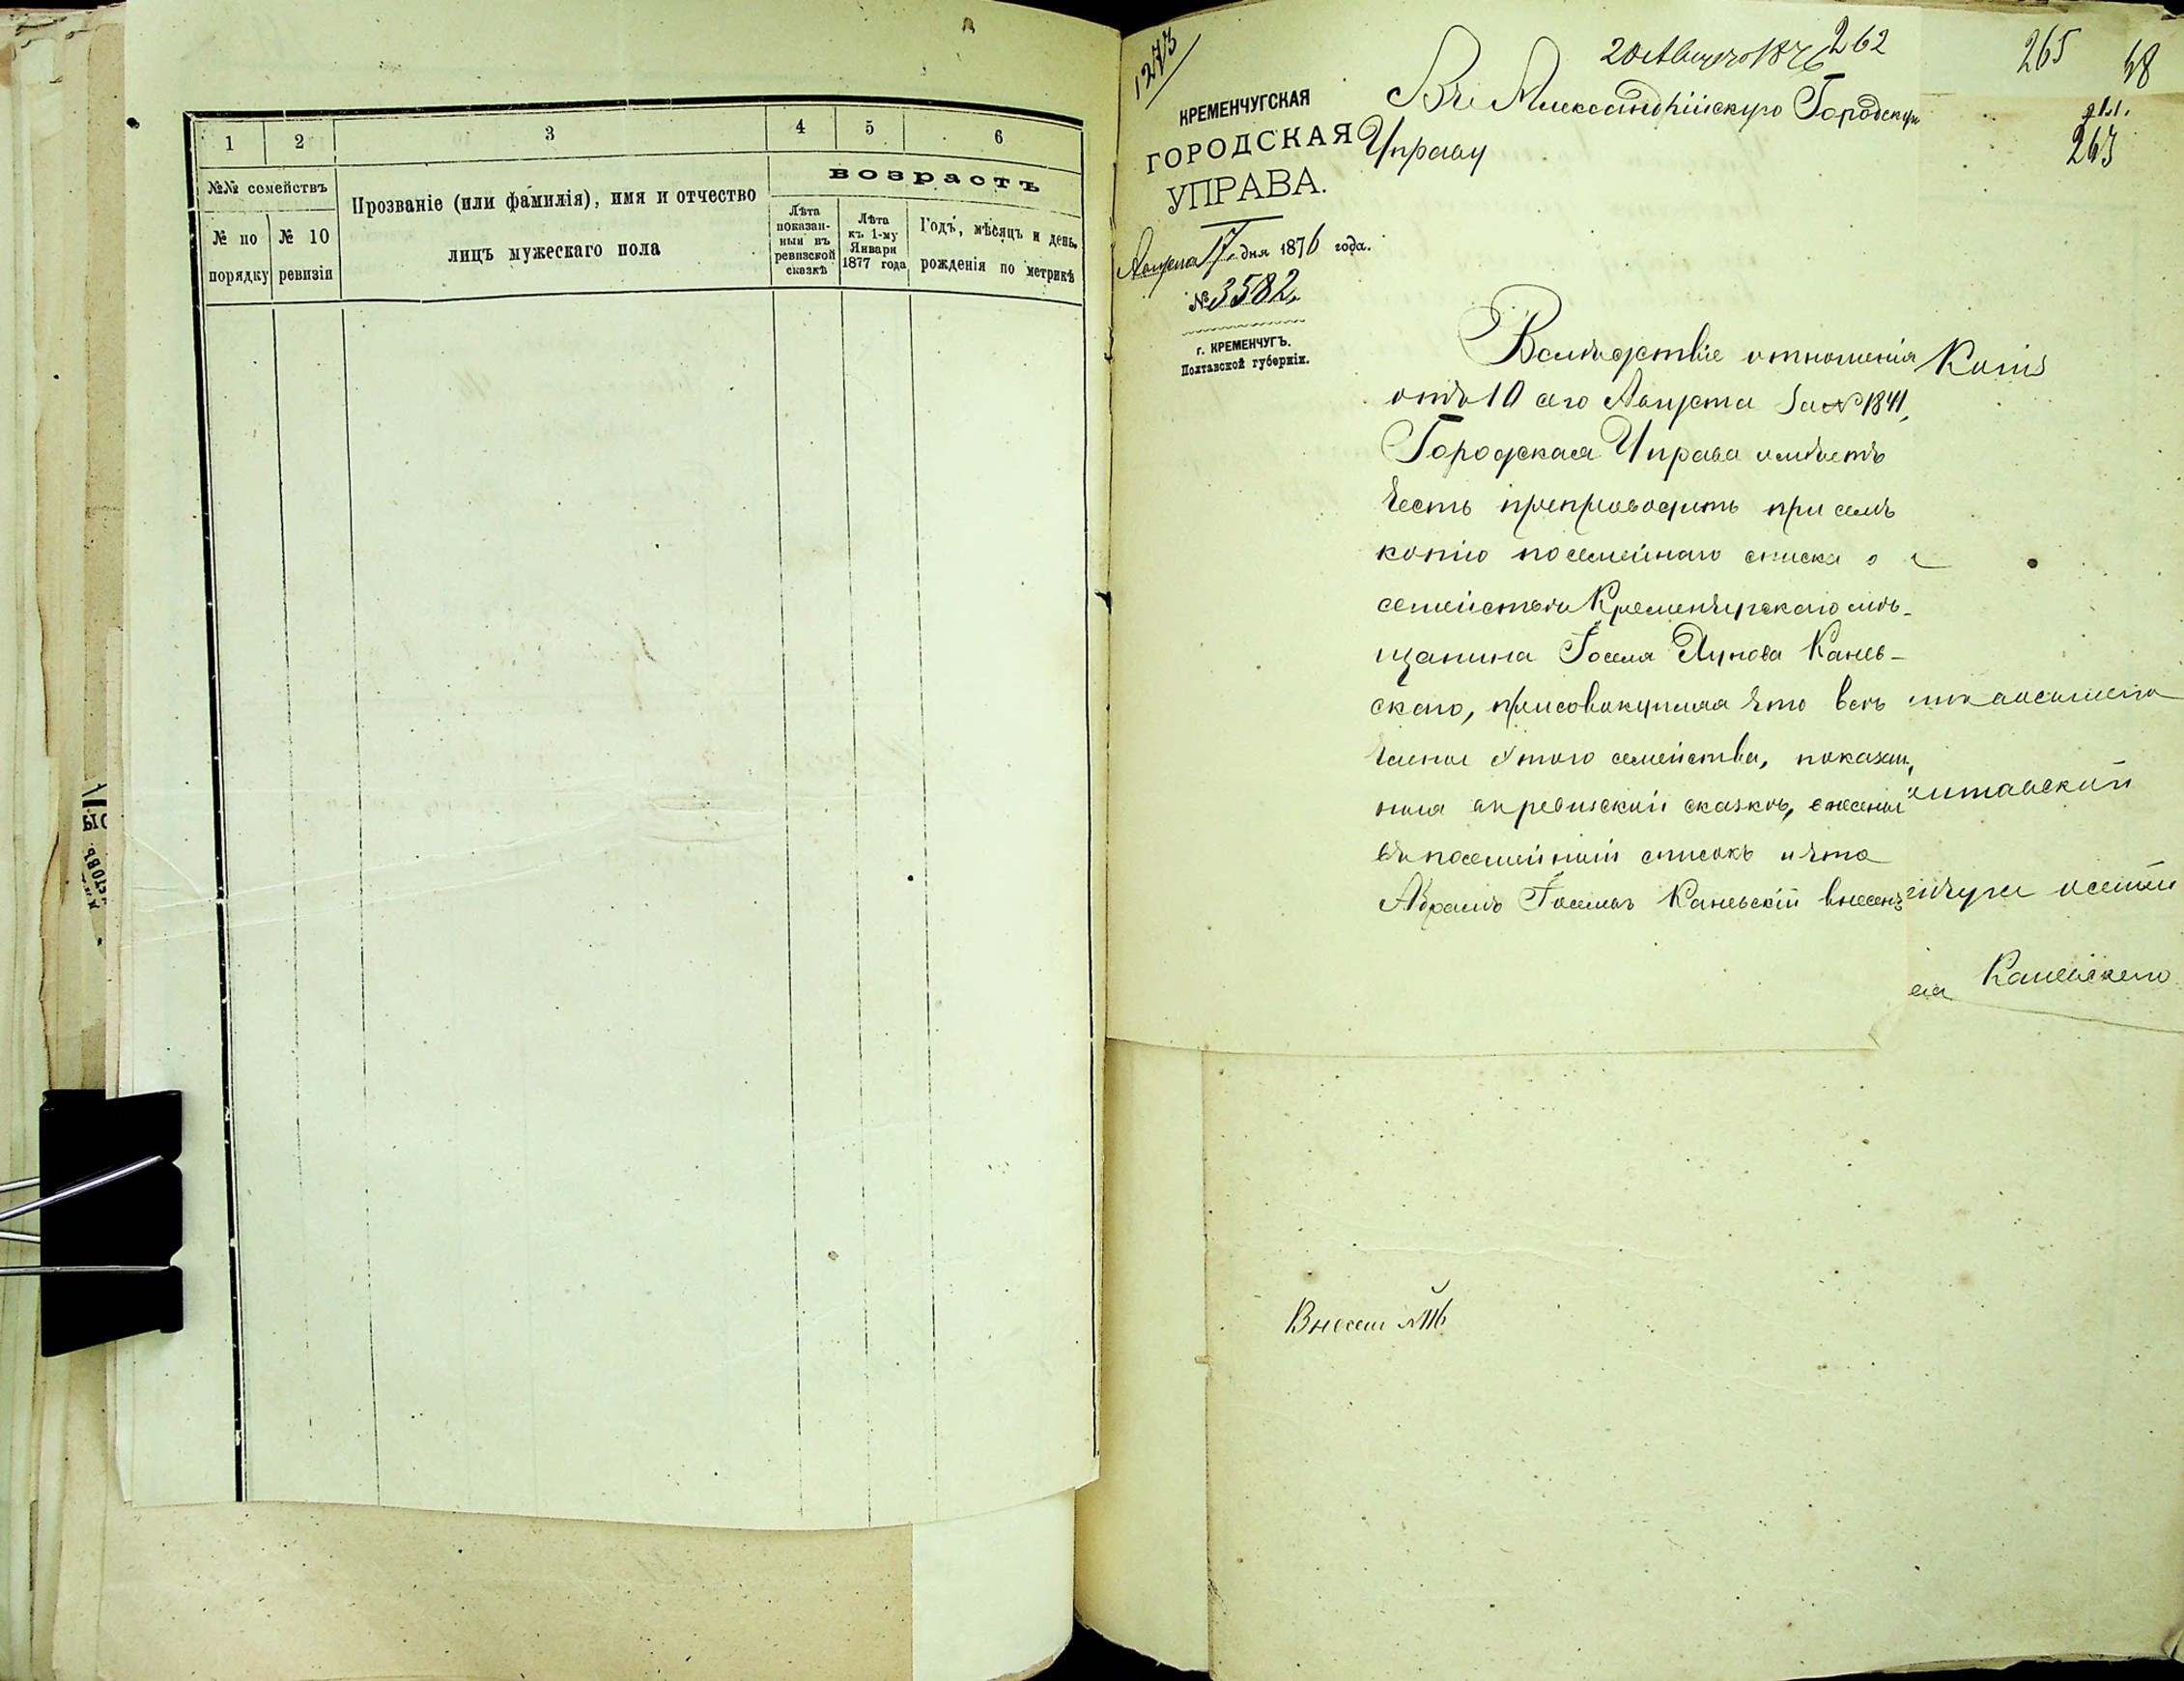 1 2 3 4 5 6
№№ семействъ
Прозваніе (или фамилія), имя и отчество
лицъ мужескаго пола
возрастъ
№ по порядку
№ 10 ревизіи
Лѣта показан-
ныя въ
ревизской
сказкѣ
Лѣта
къ 1-му
Января
1877 года
Годъ, мѣсяцъ и день
рожденія по метрикѣ
1273
КРЕМЕНЧУГСКАЯ
ГОРОДСКАЯ
УПРАВА.
Августа 17 дня 1876 года.
№ 3582.
г. КРЕМЕНЧУГЪ.
Полтавской губерніи.
20 Августа 1876
262
Въ Александрійскую Городскую
Управу
Вслѣдствіе отношенія
отъ 10 сего Августа за № 1841,
Городская Управа имѣетъ
честь препроводить при семъ
копію посемейнаго списка о
семействѣ Кременчугскаго мѣ-
щанина Іоселя Янкова Канев-
скаго, присовокупляя что всѣ
члены этого семейства, показан-
ные въ ревизской сказкѣ, внесены
въ посемейный списокъ и что
Абрамъ Іоселевъ Каневскій внесенъ
265
48
263
Копія
Каневскаго
Внесен № 116